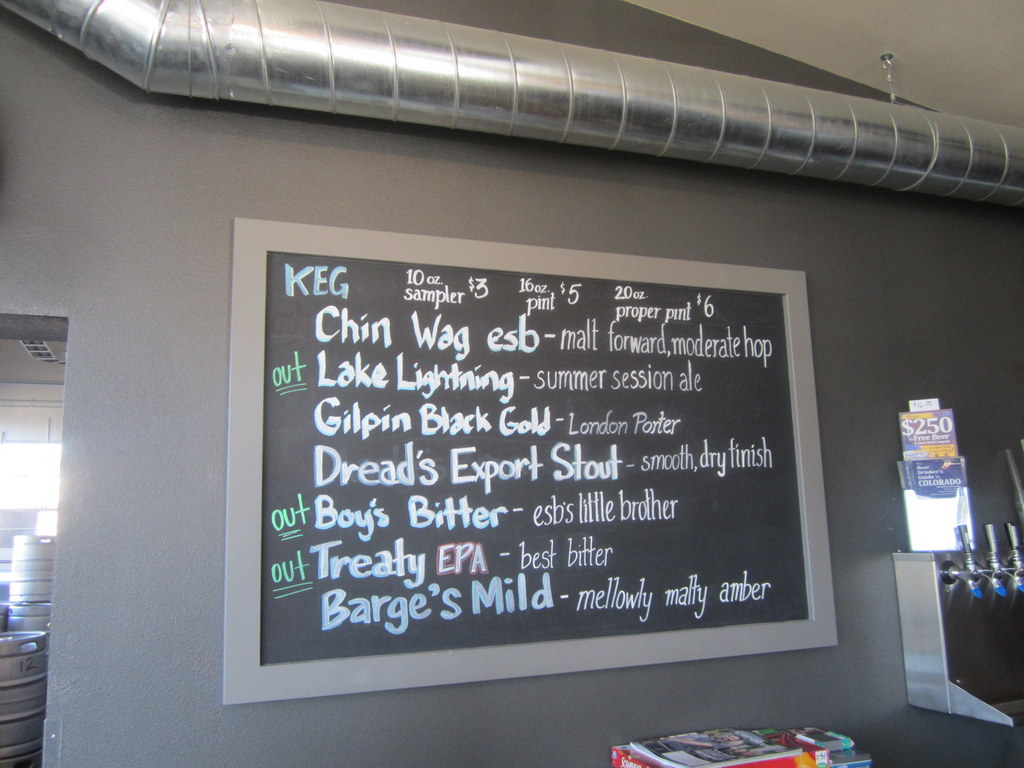 KEG 10 oz. sampler $3 16 oz. pint $5 20 oz. proper pint $6
Chin Wag esb - malt forward, moderate hop
out Lake Lightning - summer session ale
Gilpin Black Gold - London Porter
Dread's Export Stout - smooth, dry finish
out Boy's Bitter - esb's little brother
out Treaty EPA - best bitter
Barge's Mild - mellowly malty amber
$250
Free Beer
COLORADO
12